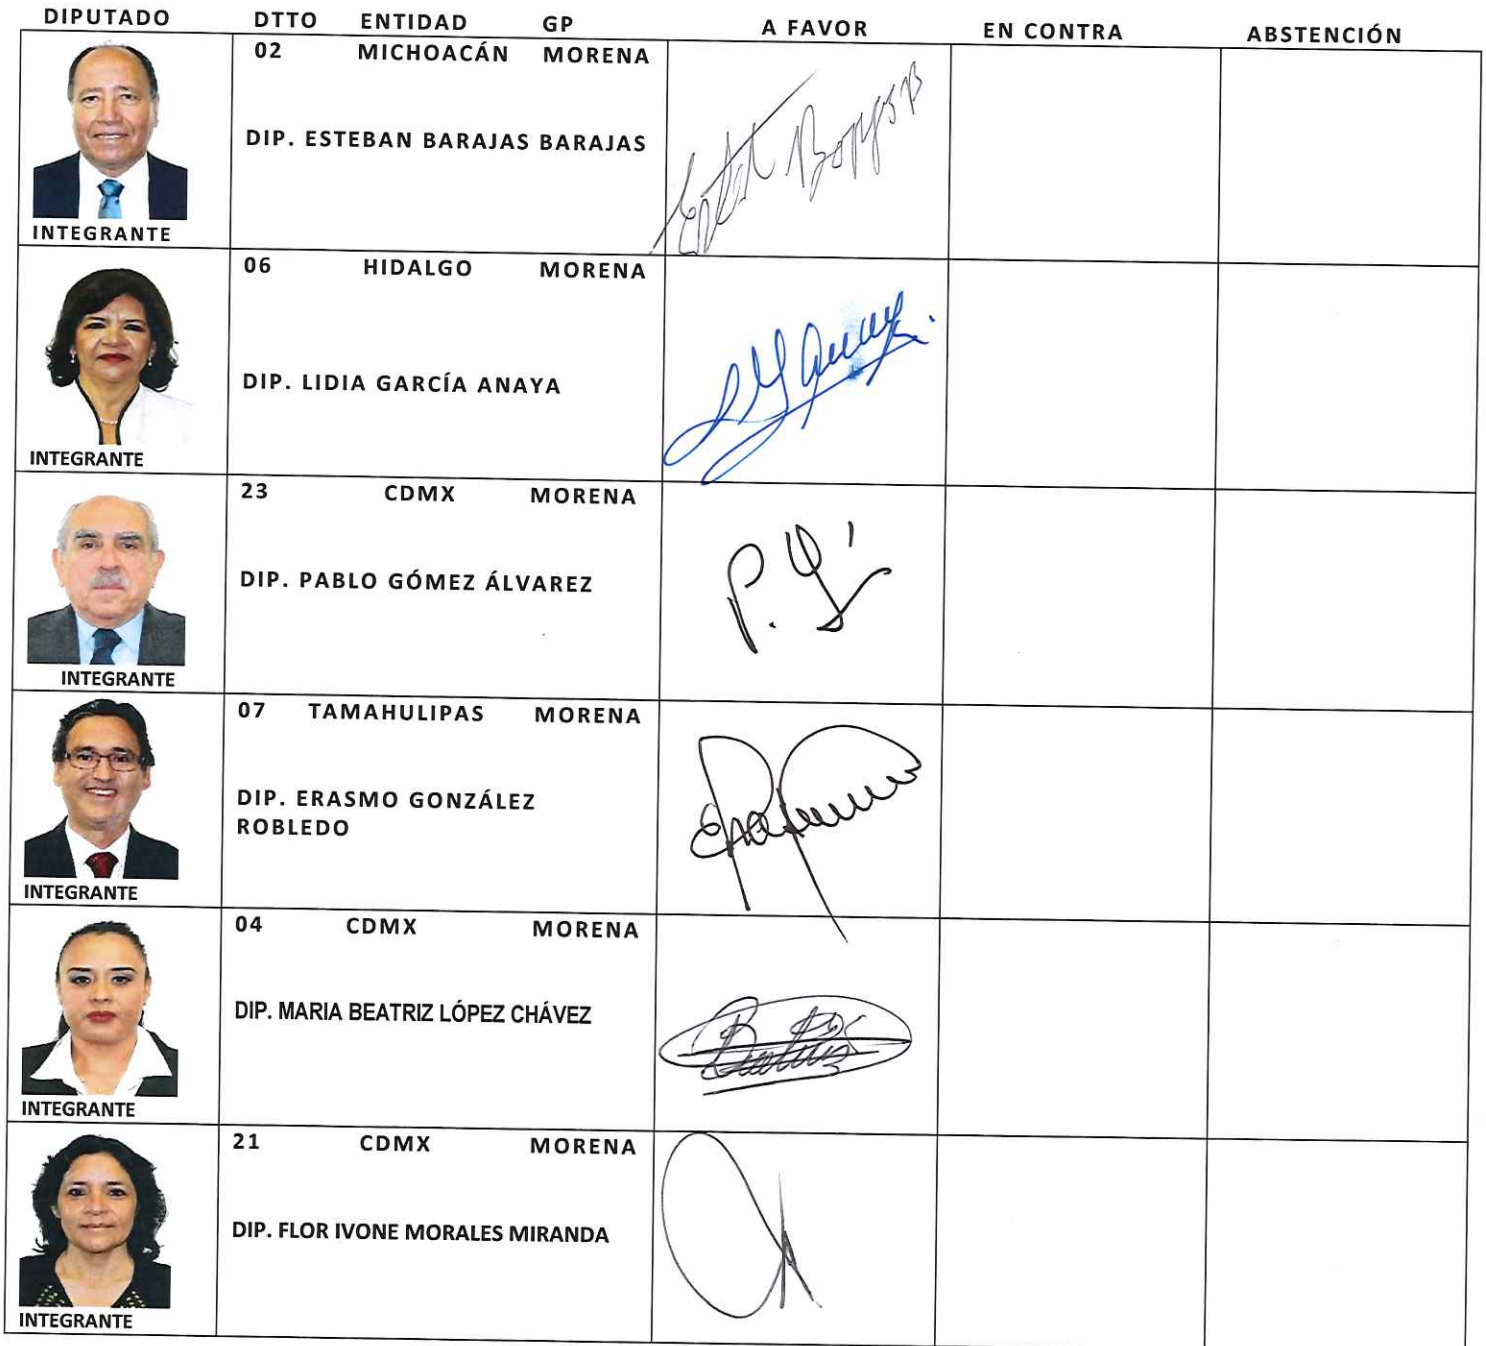 DIPUTADO DTTO ENTIDAD GP A FAVOR EN CONTRA ABSTENCIÓN
02 MICHOACÁN MORENA
DIP. ESTEBAN BARAJAS BARAJAS
INTEGRANTE
06 HIDALGO MORENA
DIP. LIDIA GARCÍA ANAYA
INTEGRANTE
23 CDMX MORENA
DIP. PABLO GÓMEZ ÁLVAREZ
INTEGRANTE
07 TAMAHULIPAS MORENA
DIP. ERASMO GONZÁLEZ
ROBLEDO
INTEGRANTE
04 CDMX MORENA
DIP. MARIA BEATRIZ LÓPEZ CHÁVEZ
INTEGRANTE
21 CDMX MORENA
DIP. FLOR IVONE MORALES MIRANDA
INTEGRANTE